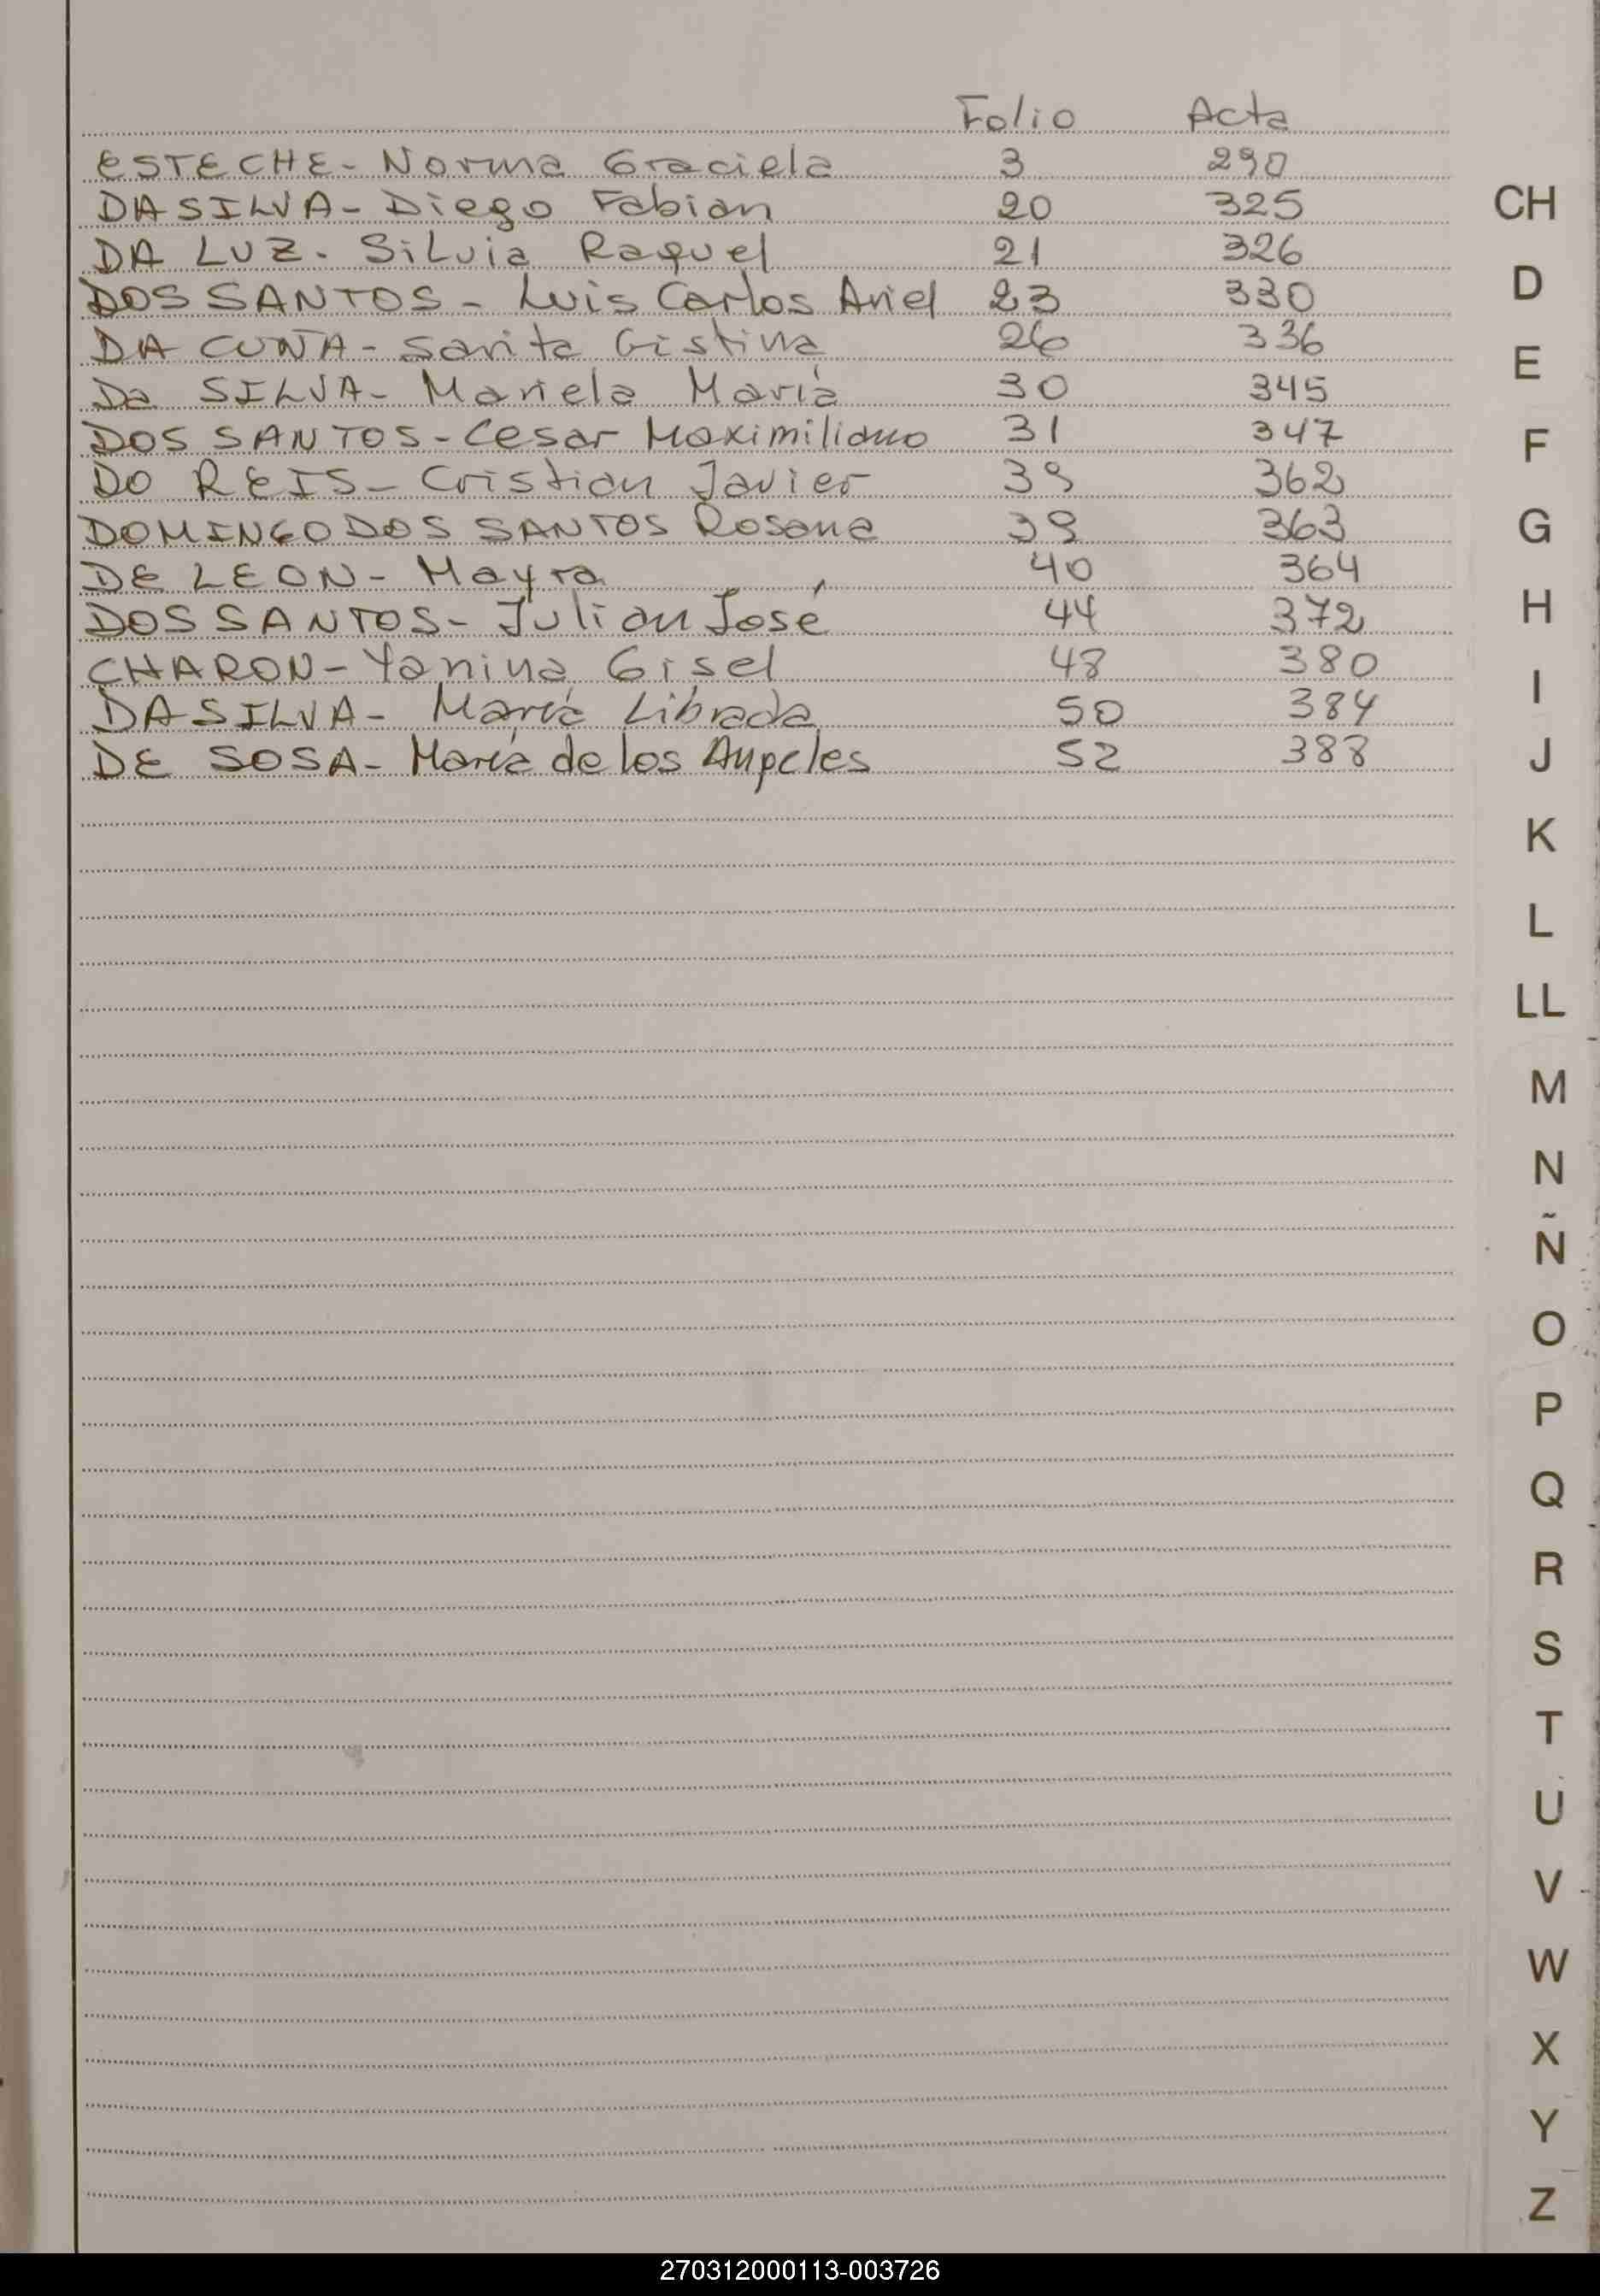 Folio Acta
ESTECHE- Norma Graciela 3 290
DASILVA- Diego Fabian 20 325
DA LUZ- SiLvia Raquel 21 326
DOS SANTOS - Luis Carlos Ariel 23 330
DA CUÑA- Sarita Cistina 26 336
Da SILVA- Mariela María 30 345
DOS SANTOS- Cesar Maximiliano 31 347
DO REIS- Cristian Javier 39 362
DOMINGO DOS SANTOS Rosana 39 363
DE LEON- Mayra 40 364
DOS SANTOS- Julian José 44 372
CHARON- Yanina Gisel 48 380
DASILVA- María Librada 50 384
DE SOSA- María de los Angeles 52 388
CH
D
E
F
G
H
I
J
K
L
LL
M
N
Ñ
O
P
Q
R
S
T
U
V
W
X
Y
Z
270312000113-003726